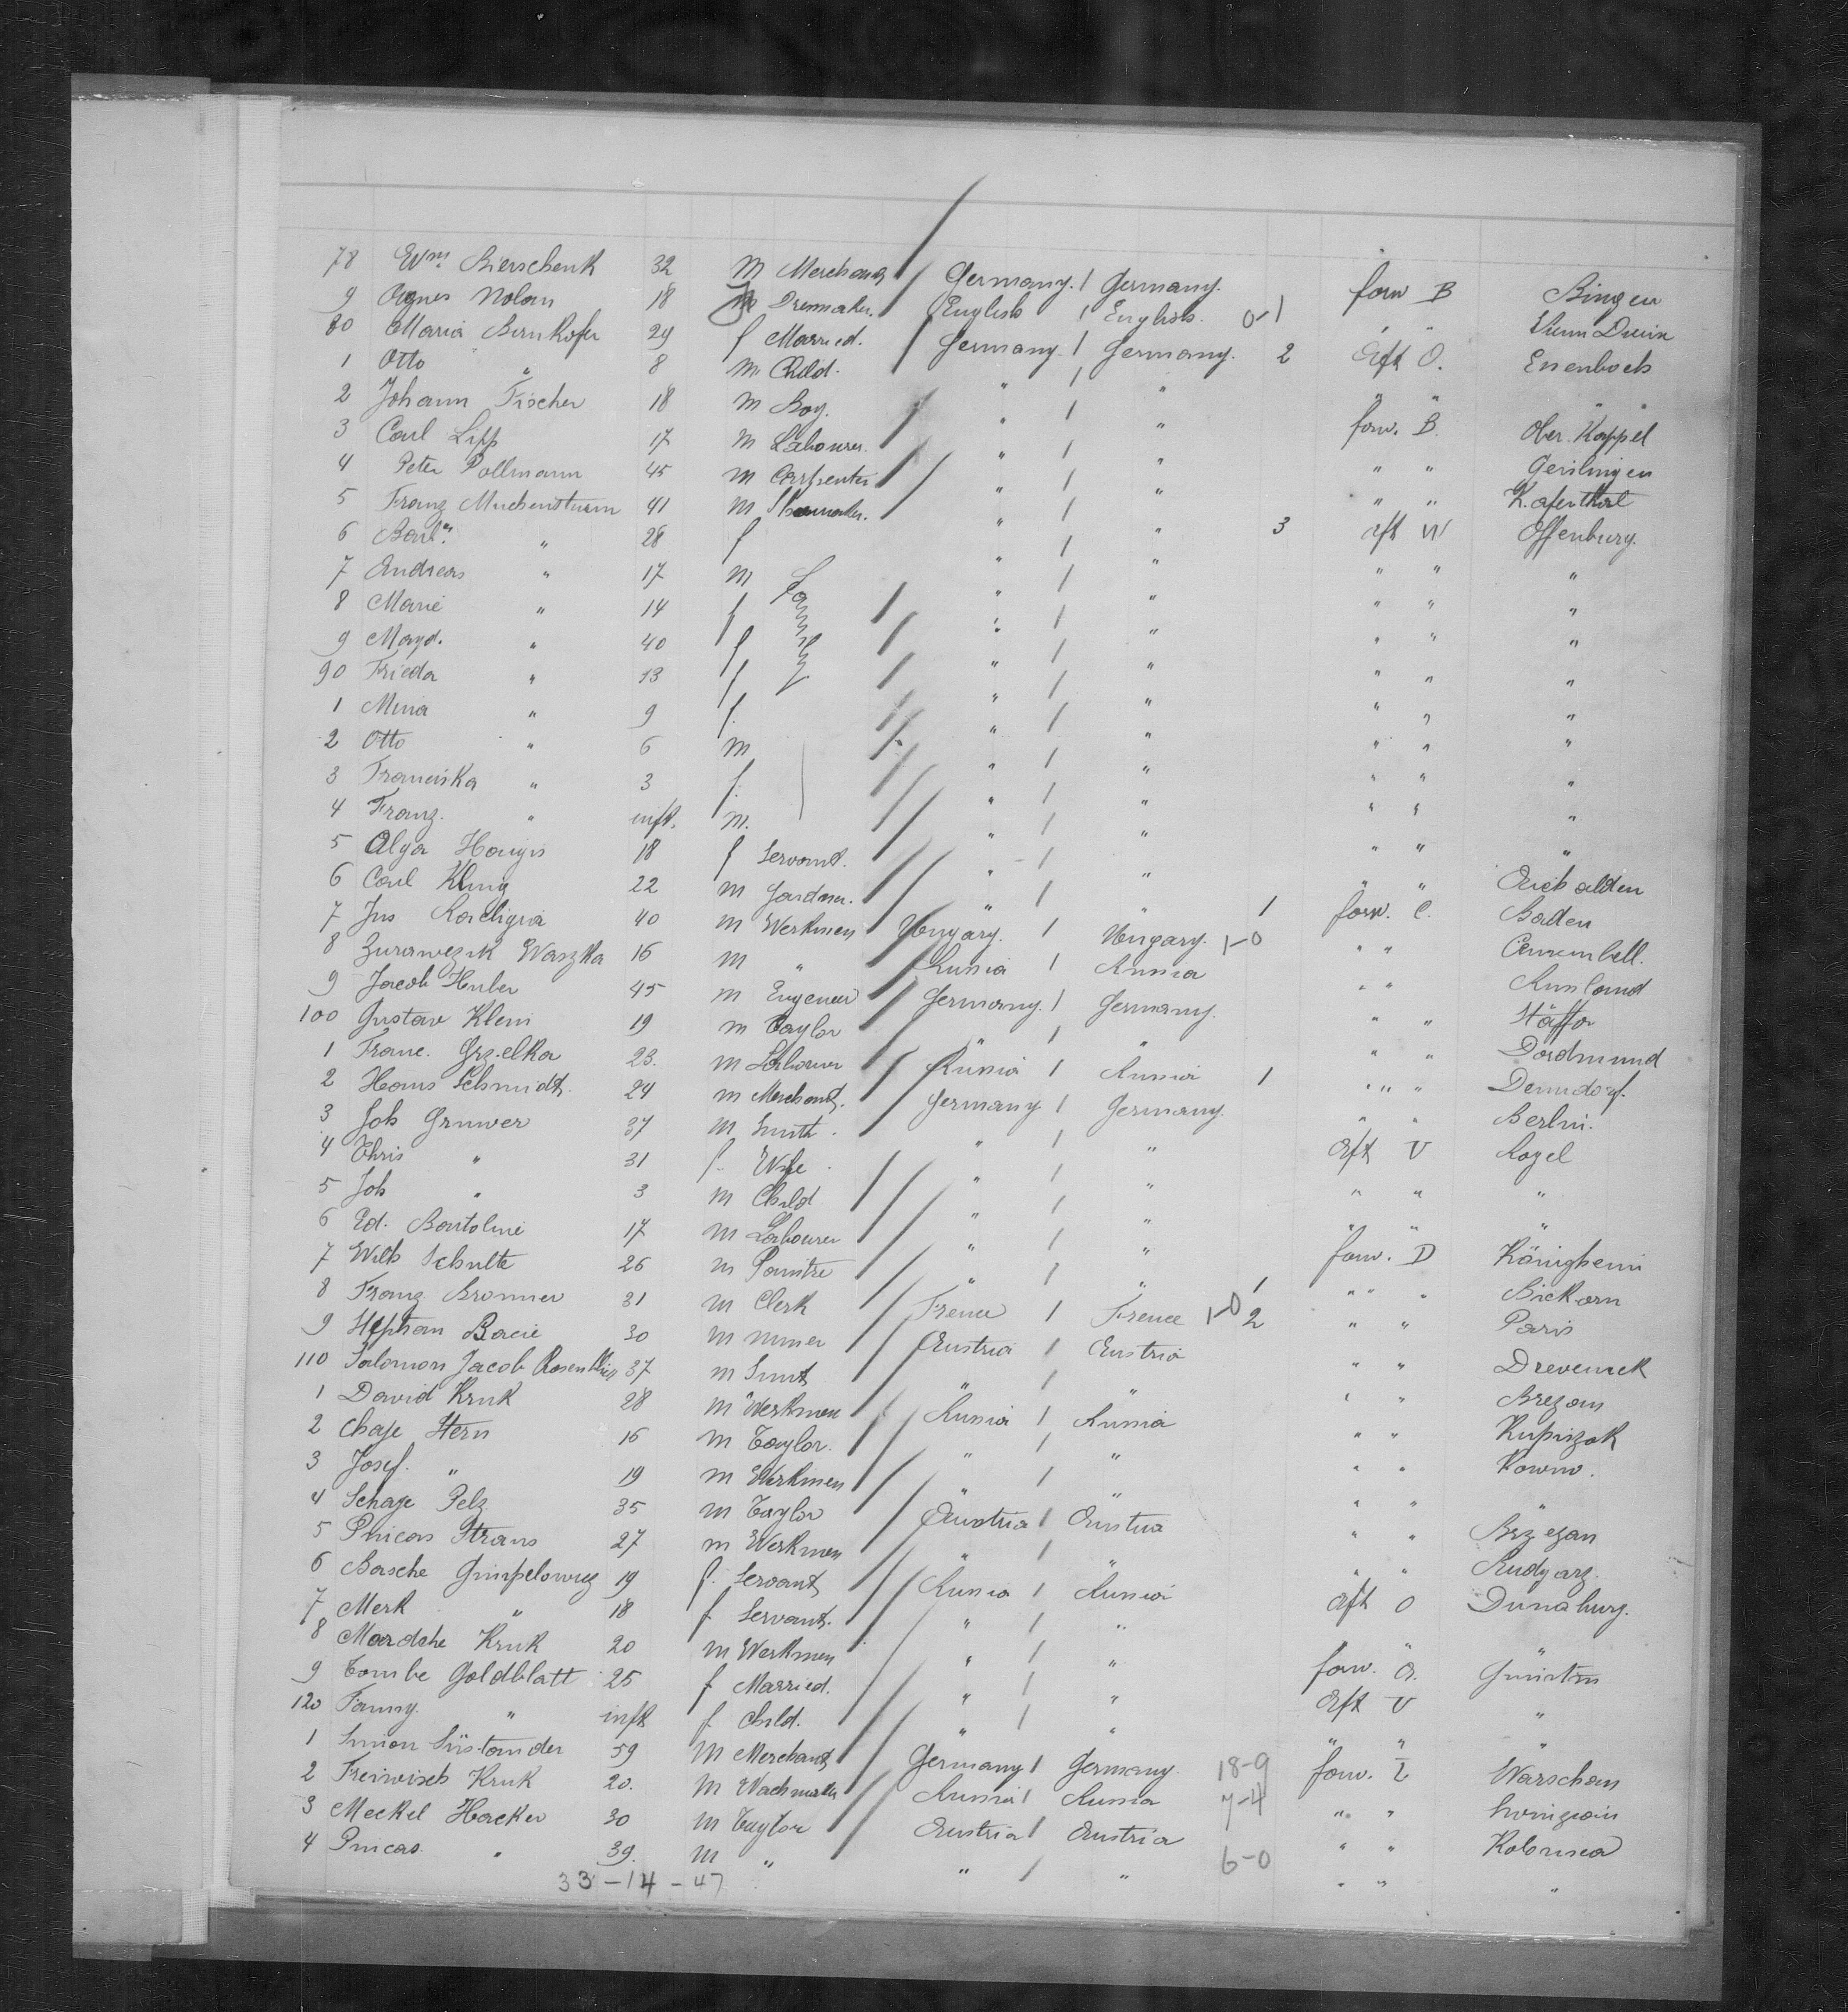 78 Wm Bierschenk 32 m Merchant Germany. Germany. forw B Bingen
9 Agnes Nolan 18 f Dressmaker. English English. 0-1 " "
80 Maria Bernhofer 29 f Married. Germany. Germany. 2 aft O. Essenbach
1 Otto " 8 m Child. " " " " "
2 Johann Fischer 18 m Boy. " " forw. B. Ober. Kappel
3 Carl Lipp 17 m Labourer. " " " " Geislingen
4 Peter Pollmann 45 m Carpenter " " " " Kafenthal
5 Franz Muchensturm 41 m Shoemaker. " " 3 aft W Offenburg.
6 Barb. " 28 f " " " " "
7 Andreas " 17 m Family " " " " "
8 Marie " 14 f " " " " "
9 Magd. " 40 f " " " " "
90 Frieda " 13 f " " " " "
1 Mina " 9 f. " " " " "
2 Otto " 6 m " " " " "
3 Franciska " 3 f. " " " " "
4 Franz. " inft. m. " " " " "
5 Olga Haugis 18 f Servant. " " " "
6 Carl Kling 22 m Gardner. " " 1 forw. C. Baden
7 Jns 40 m Werkmen Hungary. Hungary. 1-0 " "
8 Zurawczik Waszka 16 m " Russia Russia " " Russland
9 Jacob Huber 45 m Engeneer Germany. Germany. " " Staffor
100 Gustav Klein 19 m Taylor " " " " Dordmund
1 Franc. Grzelka 23. m Labourer Russia Russia 1 " " " Demdorf.
2 Hans Schmidt. 24 m Merchant. Germany Germany. " " Berlin.
3 Joh Gruwer 37 m Smith. " " aft V Kogel
4 Chris " 31 f. Wife. " " " " "
5 Joh " 3 m Child " " " " "
6 Ed. Bartoline 17 m Labourer " " forw. D Königheim
7 Wilh Schulte 26 m Paintre " " 1 " " " Bickarn
8 Franz Bronner 31 m Clerk Frence Frence 1-0 2 " " Paris
9 Stephan Bacie 30 m miner Austria Austria " " Drevenick
110 Salomon Jacob 37 m Smit " " " " Brezan
1 David Kruk 28 m Werkmen Russia Russia " " Kupiszok
2 Chaje Stern 16 m Taylor. " " " " Kowno.
3 Josef. " 19 m Werkmen " " " " "
4 Schaje Pelz 35 m Taylor Austria Austria " " Brzezan
5 Pincas Straus 27 m Werkmen " " " " Rudyarz.
6 Basche Gimpelowicz 19 f. Servant Russia Russia aft O Dunaburg.
7 Merk " 18 f. Servant. " " "
8 Mardche Kruk 20 m Werkmen " " forw.
9 Tombe Goldblatt 25 f Married. " " aft V "
120 Fanny. " inft f. Child. " " " " "
1 Simon Süstander 59 m Merchant Germany Germany. 18-9 forw. Warschau
2 Kruk 20. m Russia Russia 7-4 " "
3 Meckel Hacker 30 m Taylor Austria Austria " " Kolomea
4 Pincas. " 39. m " " " 6-0 " " "
33-14-47